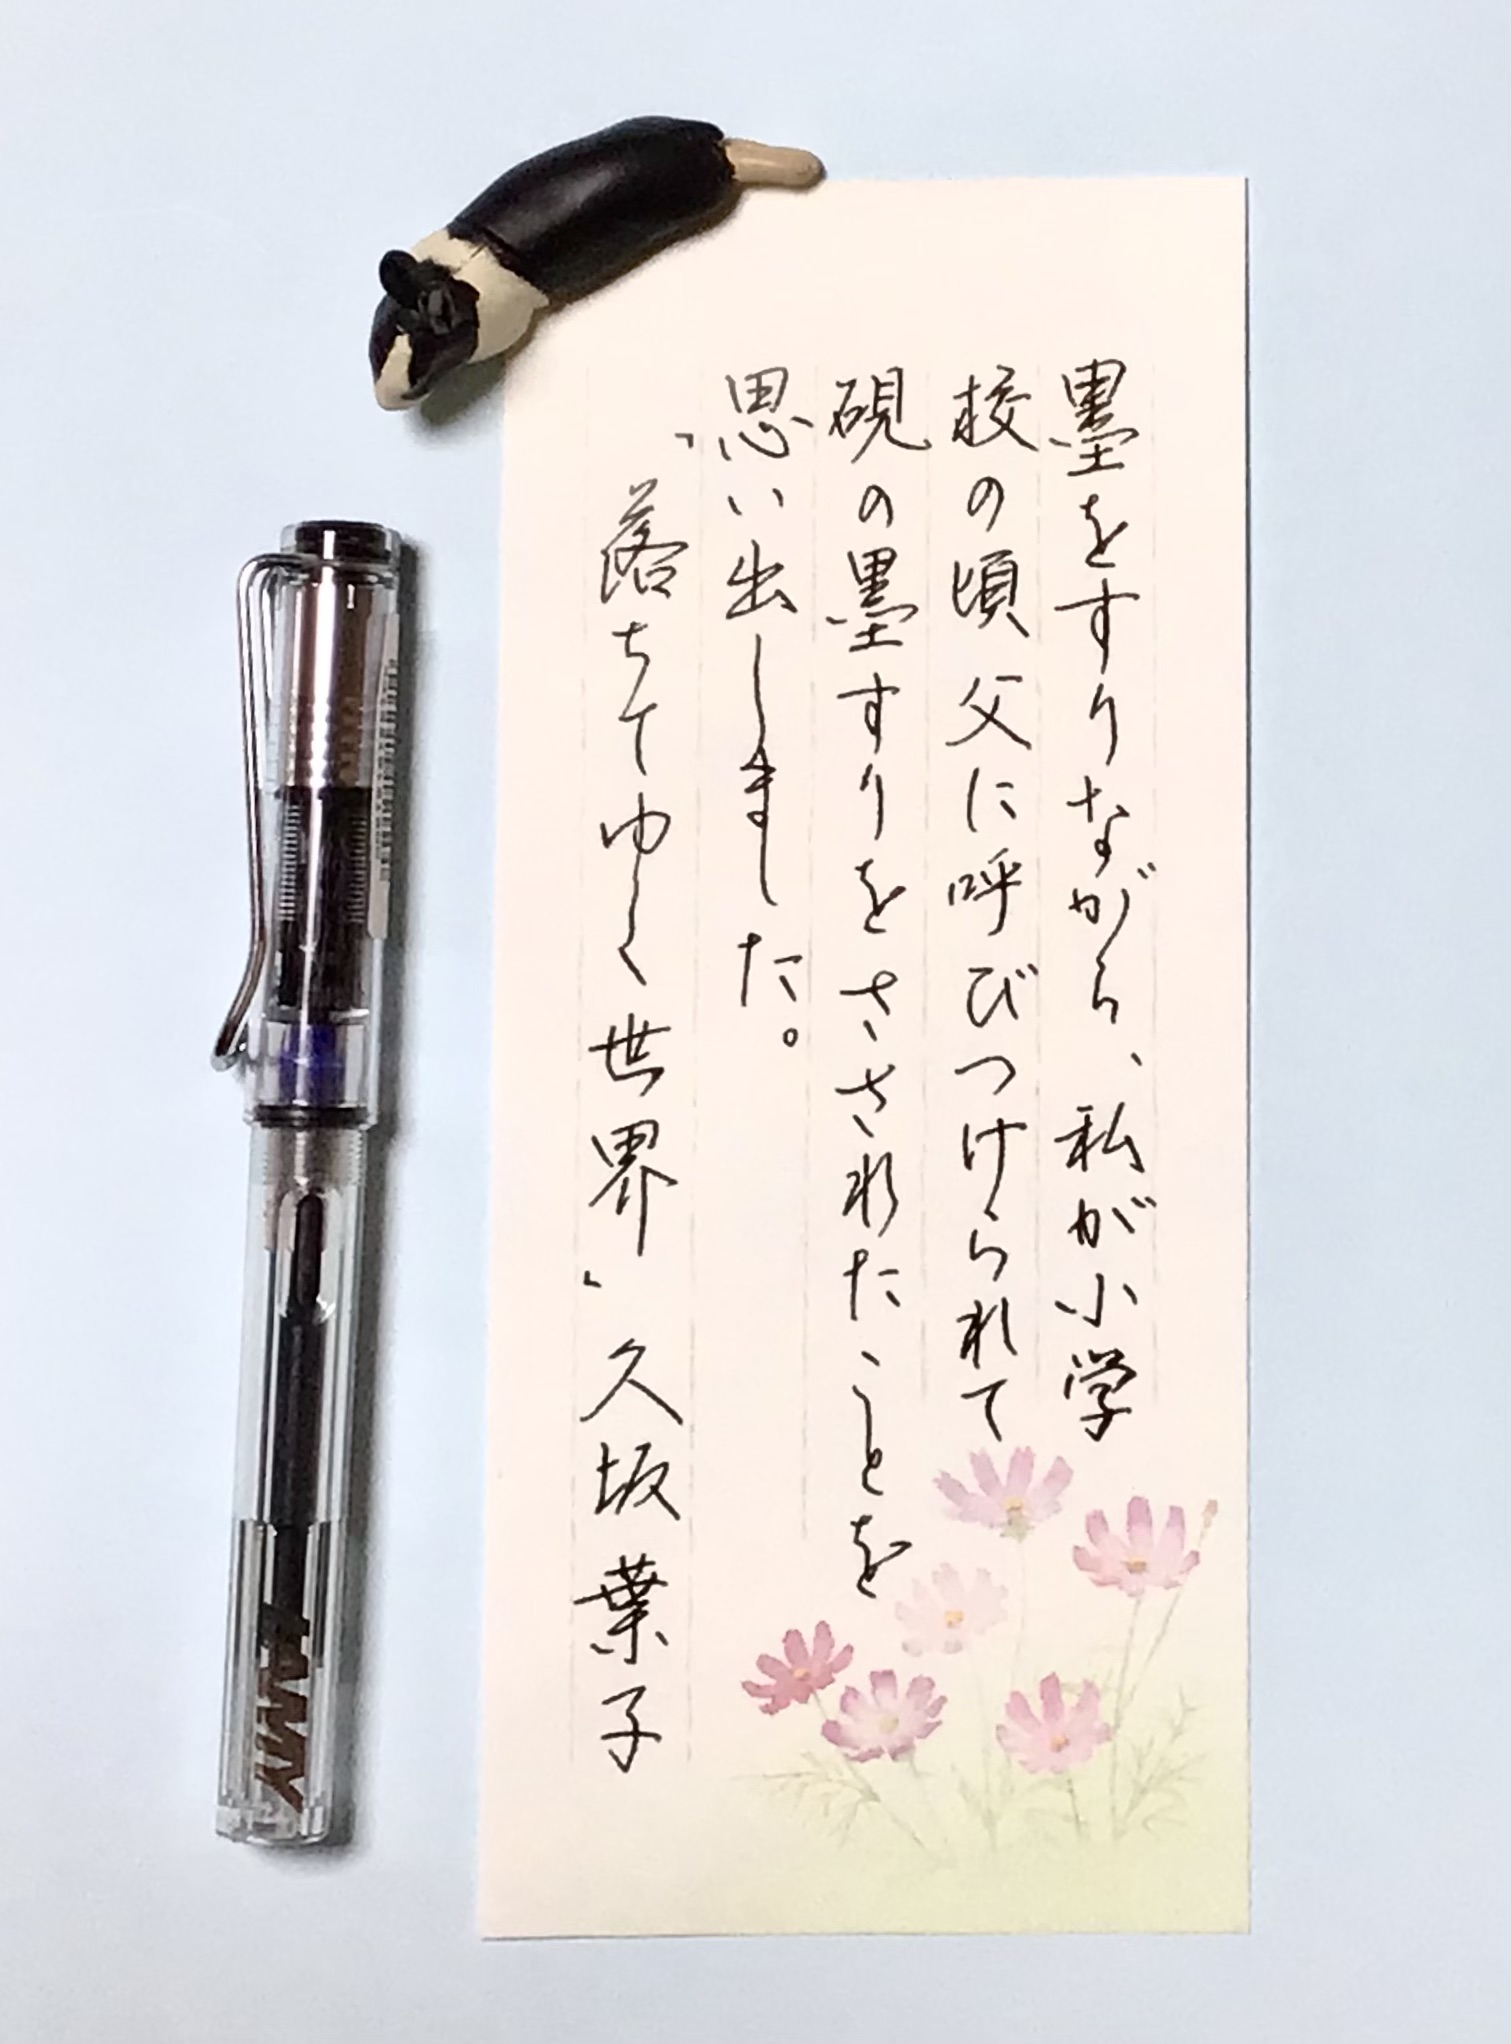 墨をすりながら、私が小学
校の頃父に呼びつけられて
硯の墨すりをさされたことを
思い出しました。
「落ちてゆく世界」久坂葉子
LAMY